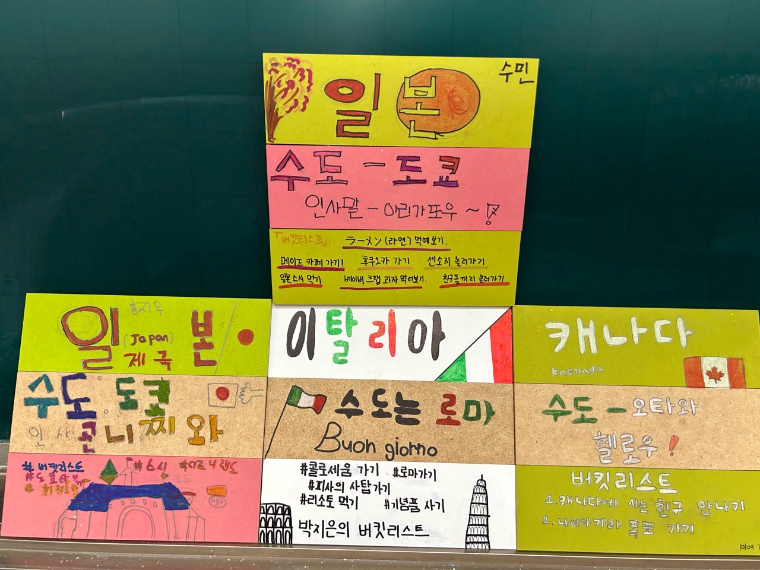 수민
일본
수도 - 도쿄
인사말 - 아리가또우 ~
「버킷리스트」 ラーメン (라멘) 먹어보기.
메이드 카페 가기! 후쿠오카 가기 센소지 놀러가기.
일본 스시 먹기 과자 먹어보기. 친구들끼리 놀러가기.
일 본
(Japan)
제국
수도: 도쿄
인사 곤니찌와
#버킷리스트
#스시
이탈리아
수도는 로마
Buon giorno
#콜로세움 가기 #로마가기
#피사의 사탑가기
#리소토 먹기 #기념품 사기
박지은의 버킷리스트
캐나다
수도 - 오타와
헬로우!
버킷리스트
1. 캐나다에 사는 친구 만나기
2. 나이아가라 폭포 가기